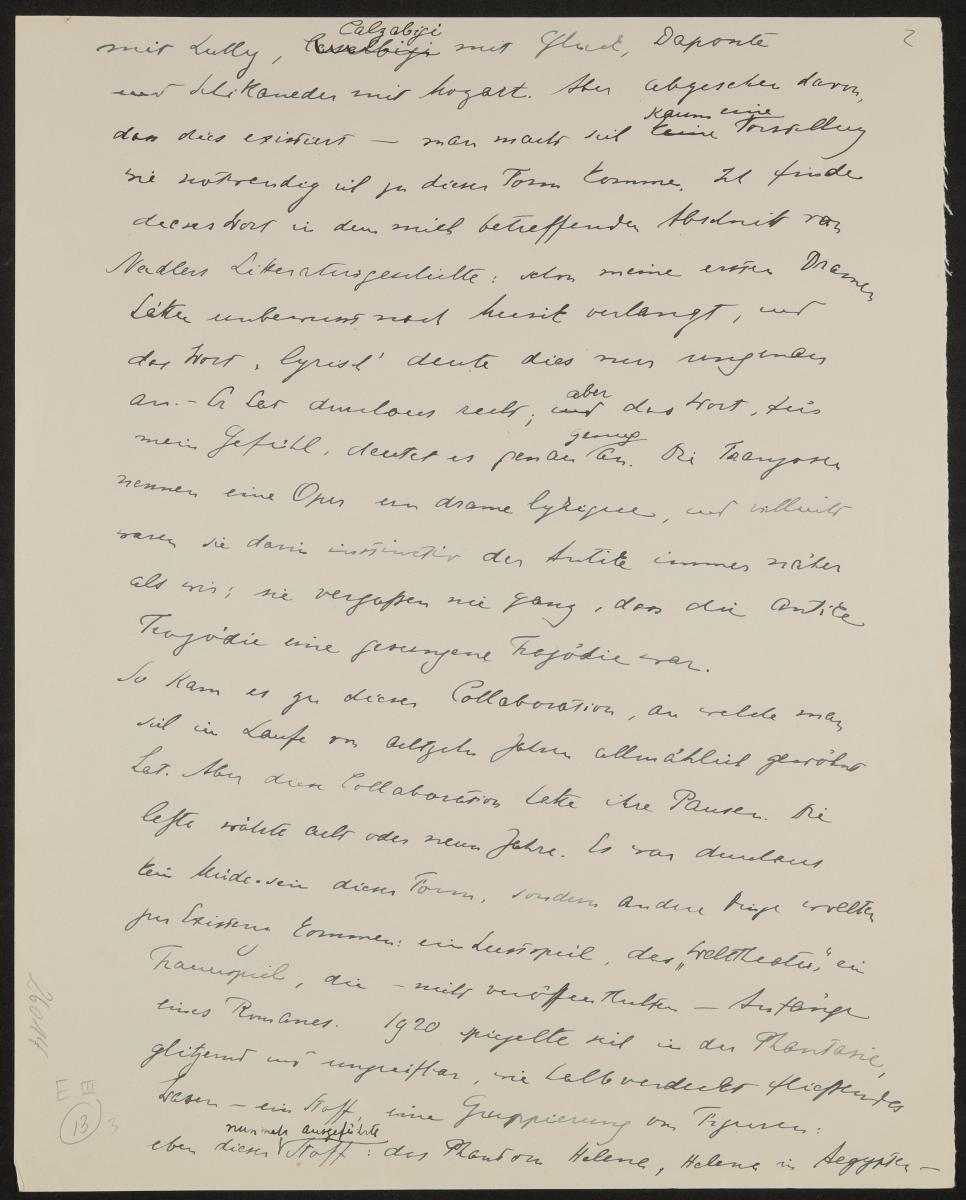 2
Calzabigi
mit Lully, Casalbigi mit Gluck, Daponte
und Schikaneder mit Mozart. Aber abgesehen davon,
kaum eine
dass dies existiert — man macht sich keine Vorstellung
wie notwendig ich zu dieser Form komme. Ich finde
dieses Wort in dem mich betreffenden Abschnitt von
Nadlers Litteraturgeschichte: schon meine ersten Dramen
hätten unbewusst nach Musik verlangt, und
das Wort „lyrisch" deute dies nur ungenau
aber
an. — Er hat durchaus recht; und das Wort, für's
genug
mein Gefühl, deutet es genau an. Die Franzosen
nennen eine Oper un drame lyrique, und vielleicht
waren sie darin instinctiv der Antike immer näher
als wir; sie vergaßen nie ganz, dass die antike
Tragödie eine gesungene Tragödie war.
So kam es zu dieser Collaboration, an welche man
sich im Laufe von achtzehn Jahren allmählich gewöhnt
hat. Aber diese Collaboration hatte ihre Pausen. Die
letzte währte acht oder neun Jahre. Es war durchaus
kein Müde-sein dieser Form, sondern andere Dinge wollten
zur Existenz kommen: ein Lustspiel, das „Welttheater", ein
Trauerspiel, die — nicht veröffentlichten — Anfänge
eines Romanes. 1920 spiegelte sich in der Phantasie,
glitzernd und ungreifbar, wie halbverdeckt fliessendes
Wasser — ein Stoff, eine Gruppierung von Figuren:
nunmehr ausgeführte
eben dieser Stoff: das Phantom Helena, Helena in Aegypten —
26014
E III
13
3